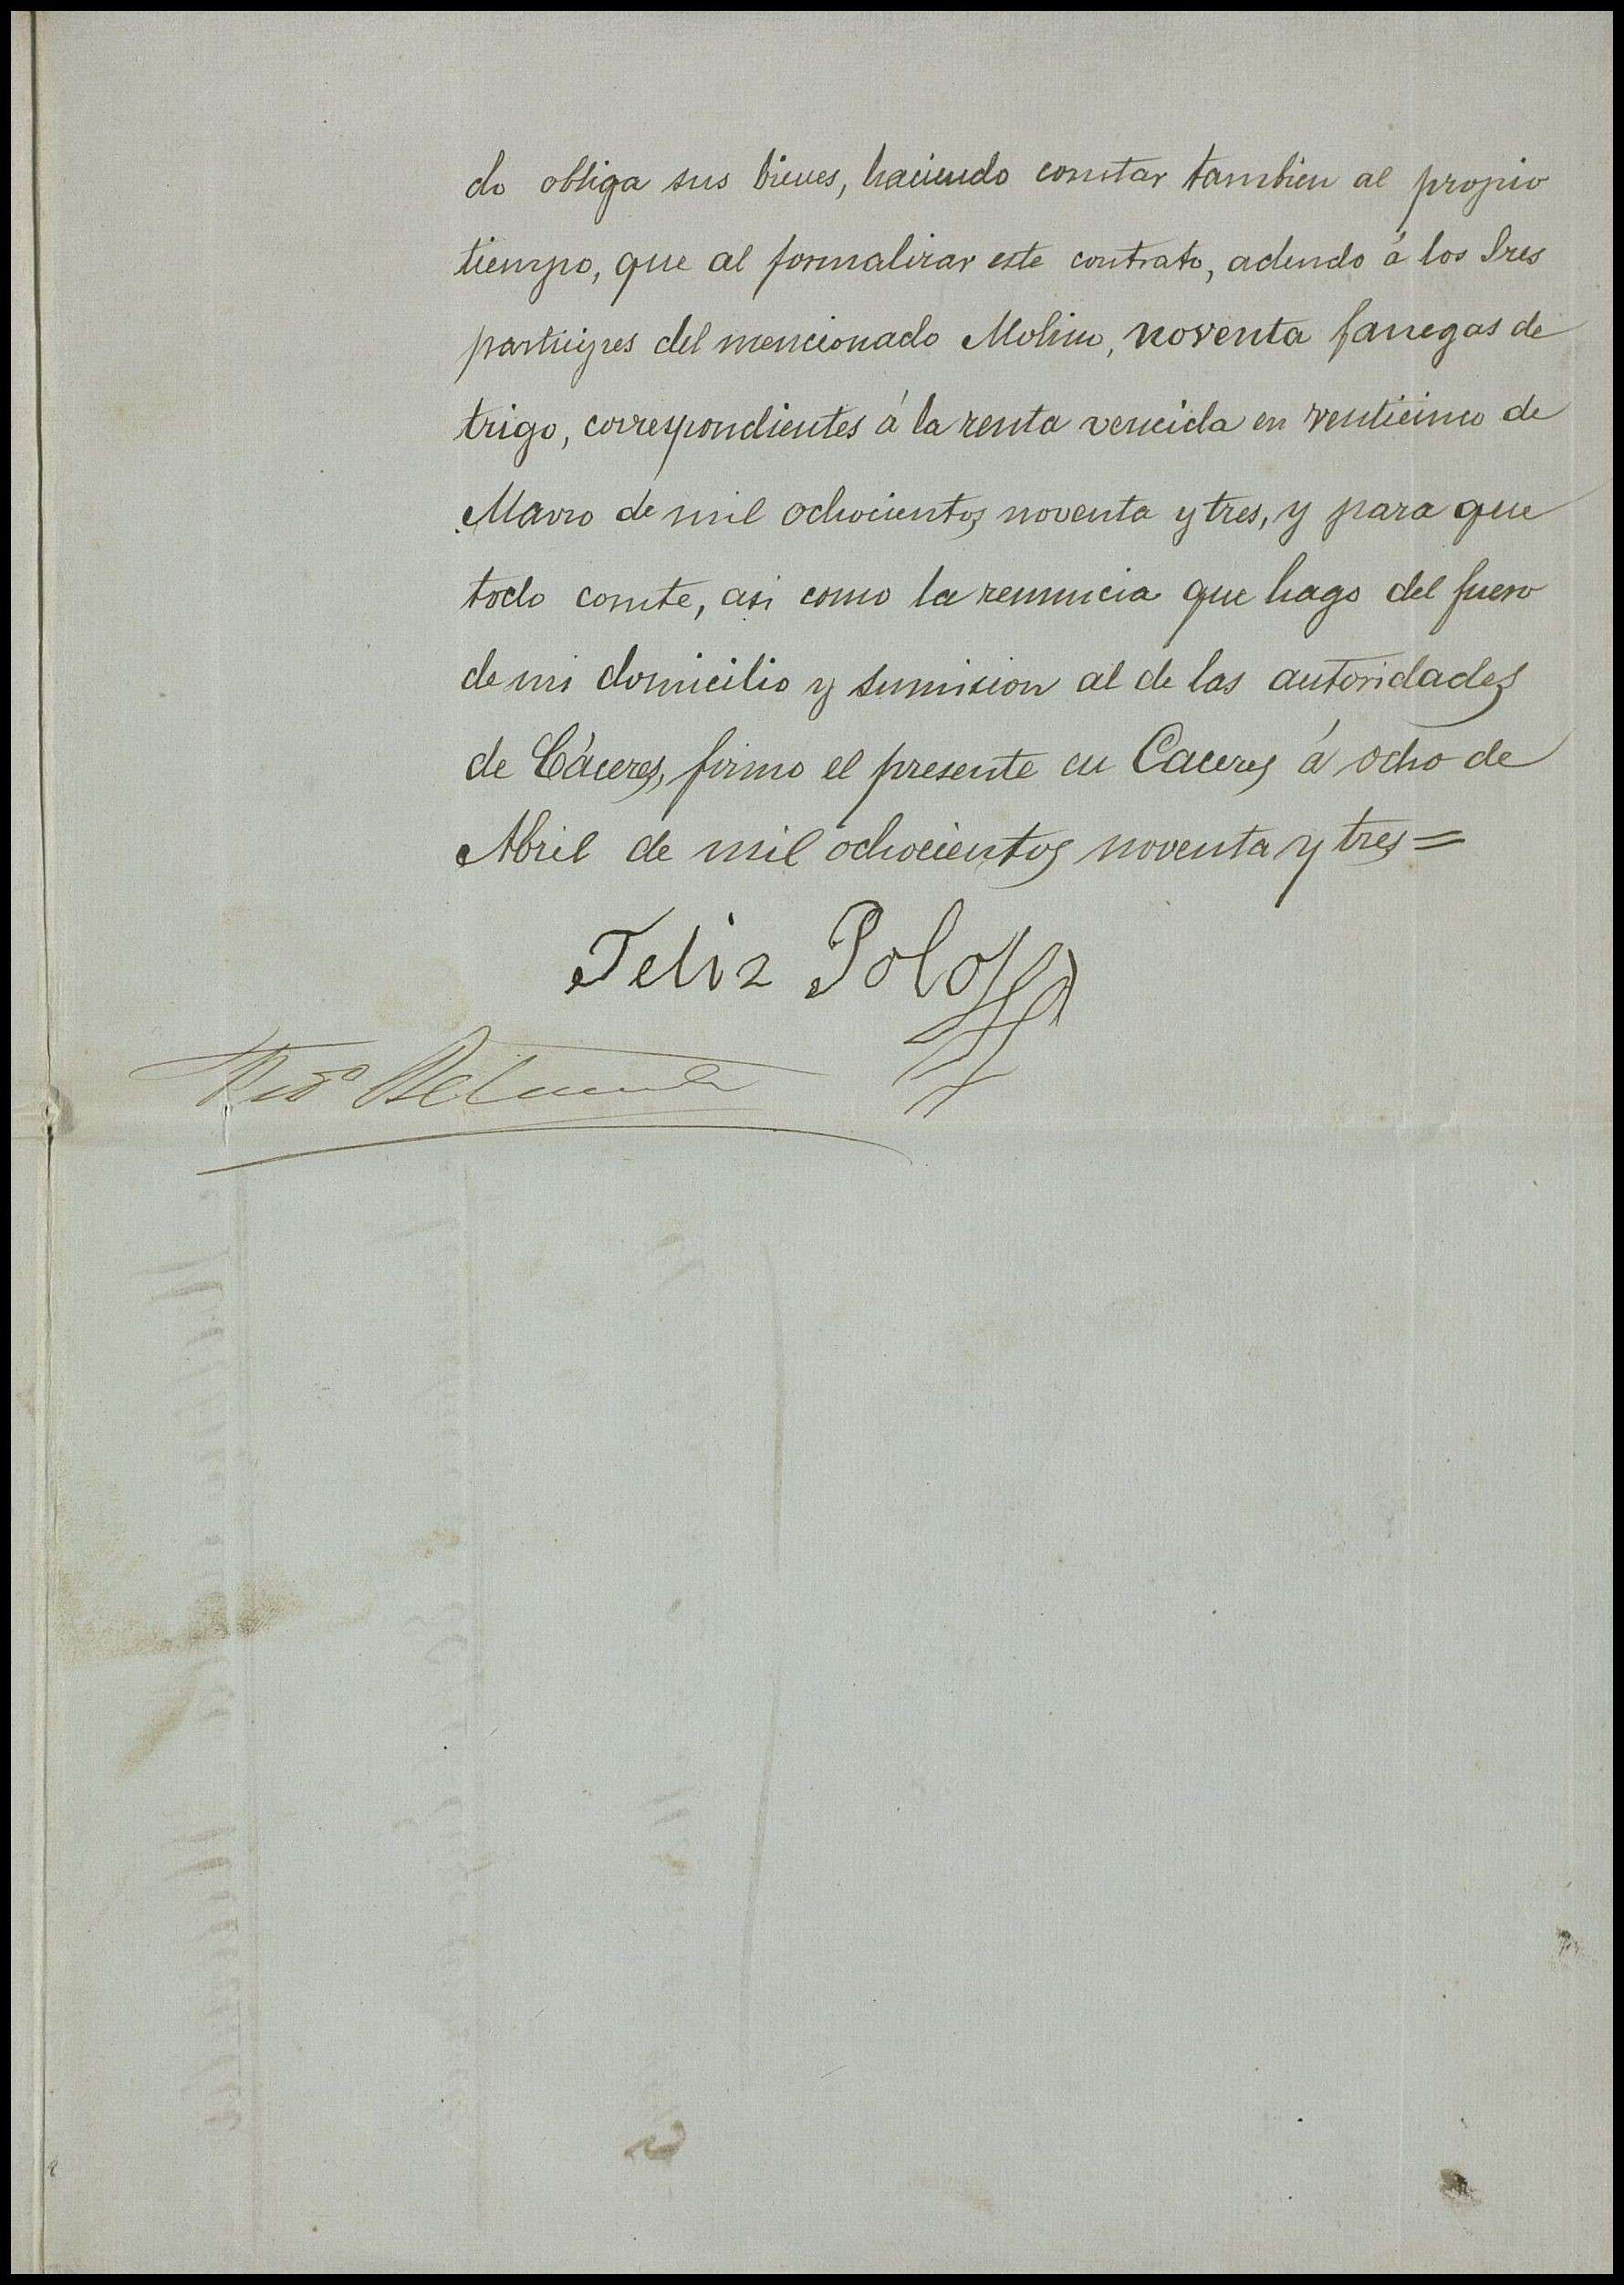 do obliga sus bienes, haciendo constar tambien al propio
tiempo, que al formalizar este contrato, adeudo á los Sres
participes del mencionado Molino, noventa fanegas de
trigo, correspondientes á la renta vencida en venticinco de
Marzo de mil ochocientos noventa y tres, y para que
todo conste, asi como la renuncia que hago del fuero
de mi domicilio y sumision al de las autoridades
de Cáceres, firmo el presente en Caceres á ocho de
Abril de mil ochocientos noventa y tres =
Feliz Polo